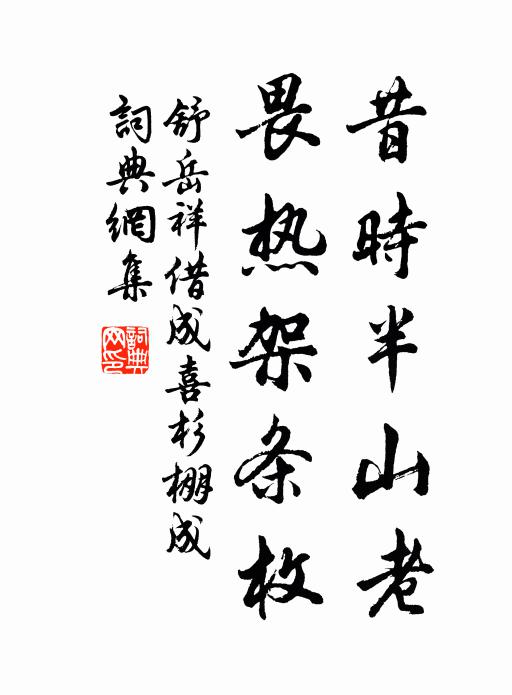 昔時半山老
畏热架条枚
舒岳祥借成喜杉棚成
詞典網集
詞典網印